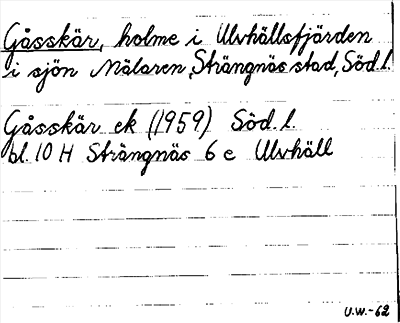 Gåsskär, holme i Ulvhällsfjärden
i sjön Mälaren, Strängnäs stad, Söd. l.
Gåsskär ek (1959) Söd. l.
bl. 10 H Strängnäs 6 e Ulvhäll
U.W.-62